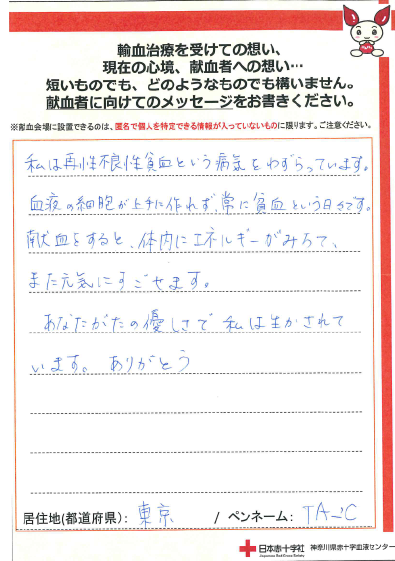 輸血治療を受けての想い、
現在の心境、献血者への想い…
短いものでも、どのようなものでも構いません。
献血者に向けてのメッセージをお書きください。
※献血会場に設置できるのは、匿名で個人を特定できる情報が入っていないものに限ります。ご注意ください。
私は再性不良性貧血という病気をわずらっています。
血液の細胞が上手に作れず、常に貧血という日々です。
献血をすると、体内にエネルギーがみちて、
また元気にすごせます。
あなたがたの優しさで私は生かされて
います。ありがとう
居住地(都道府県): 東京 / ペンネーム: TA-C
日本赤十字社 神奈川県赤十字血液センター
Japanese Red Cross Society